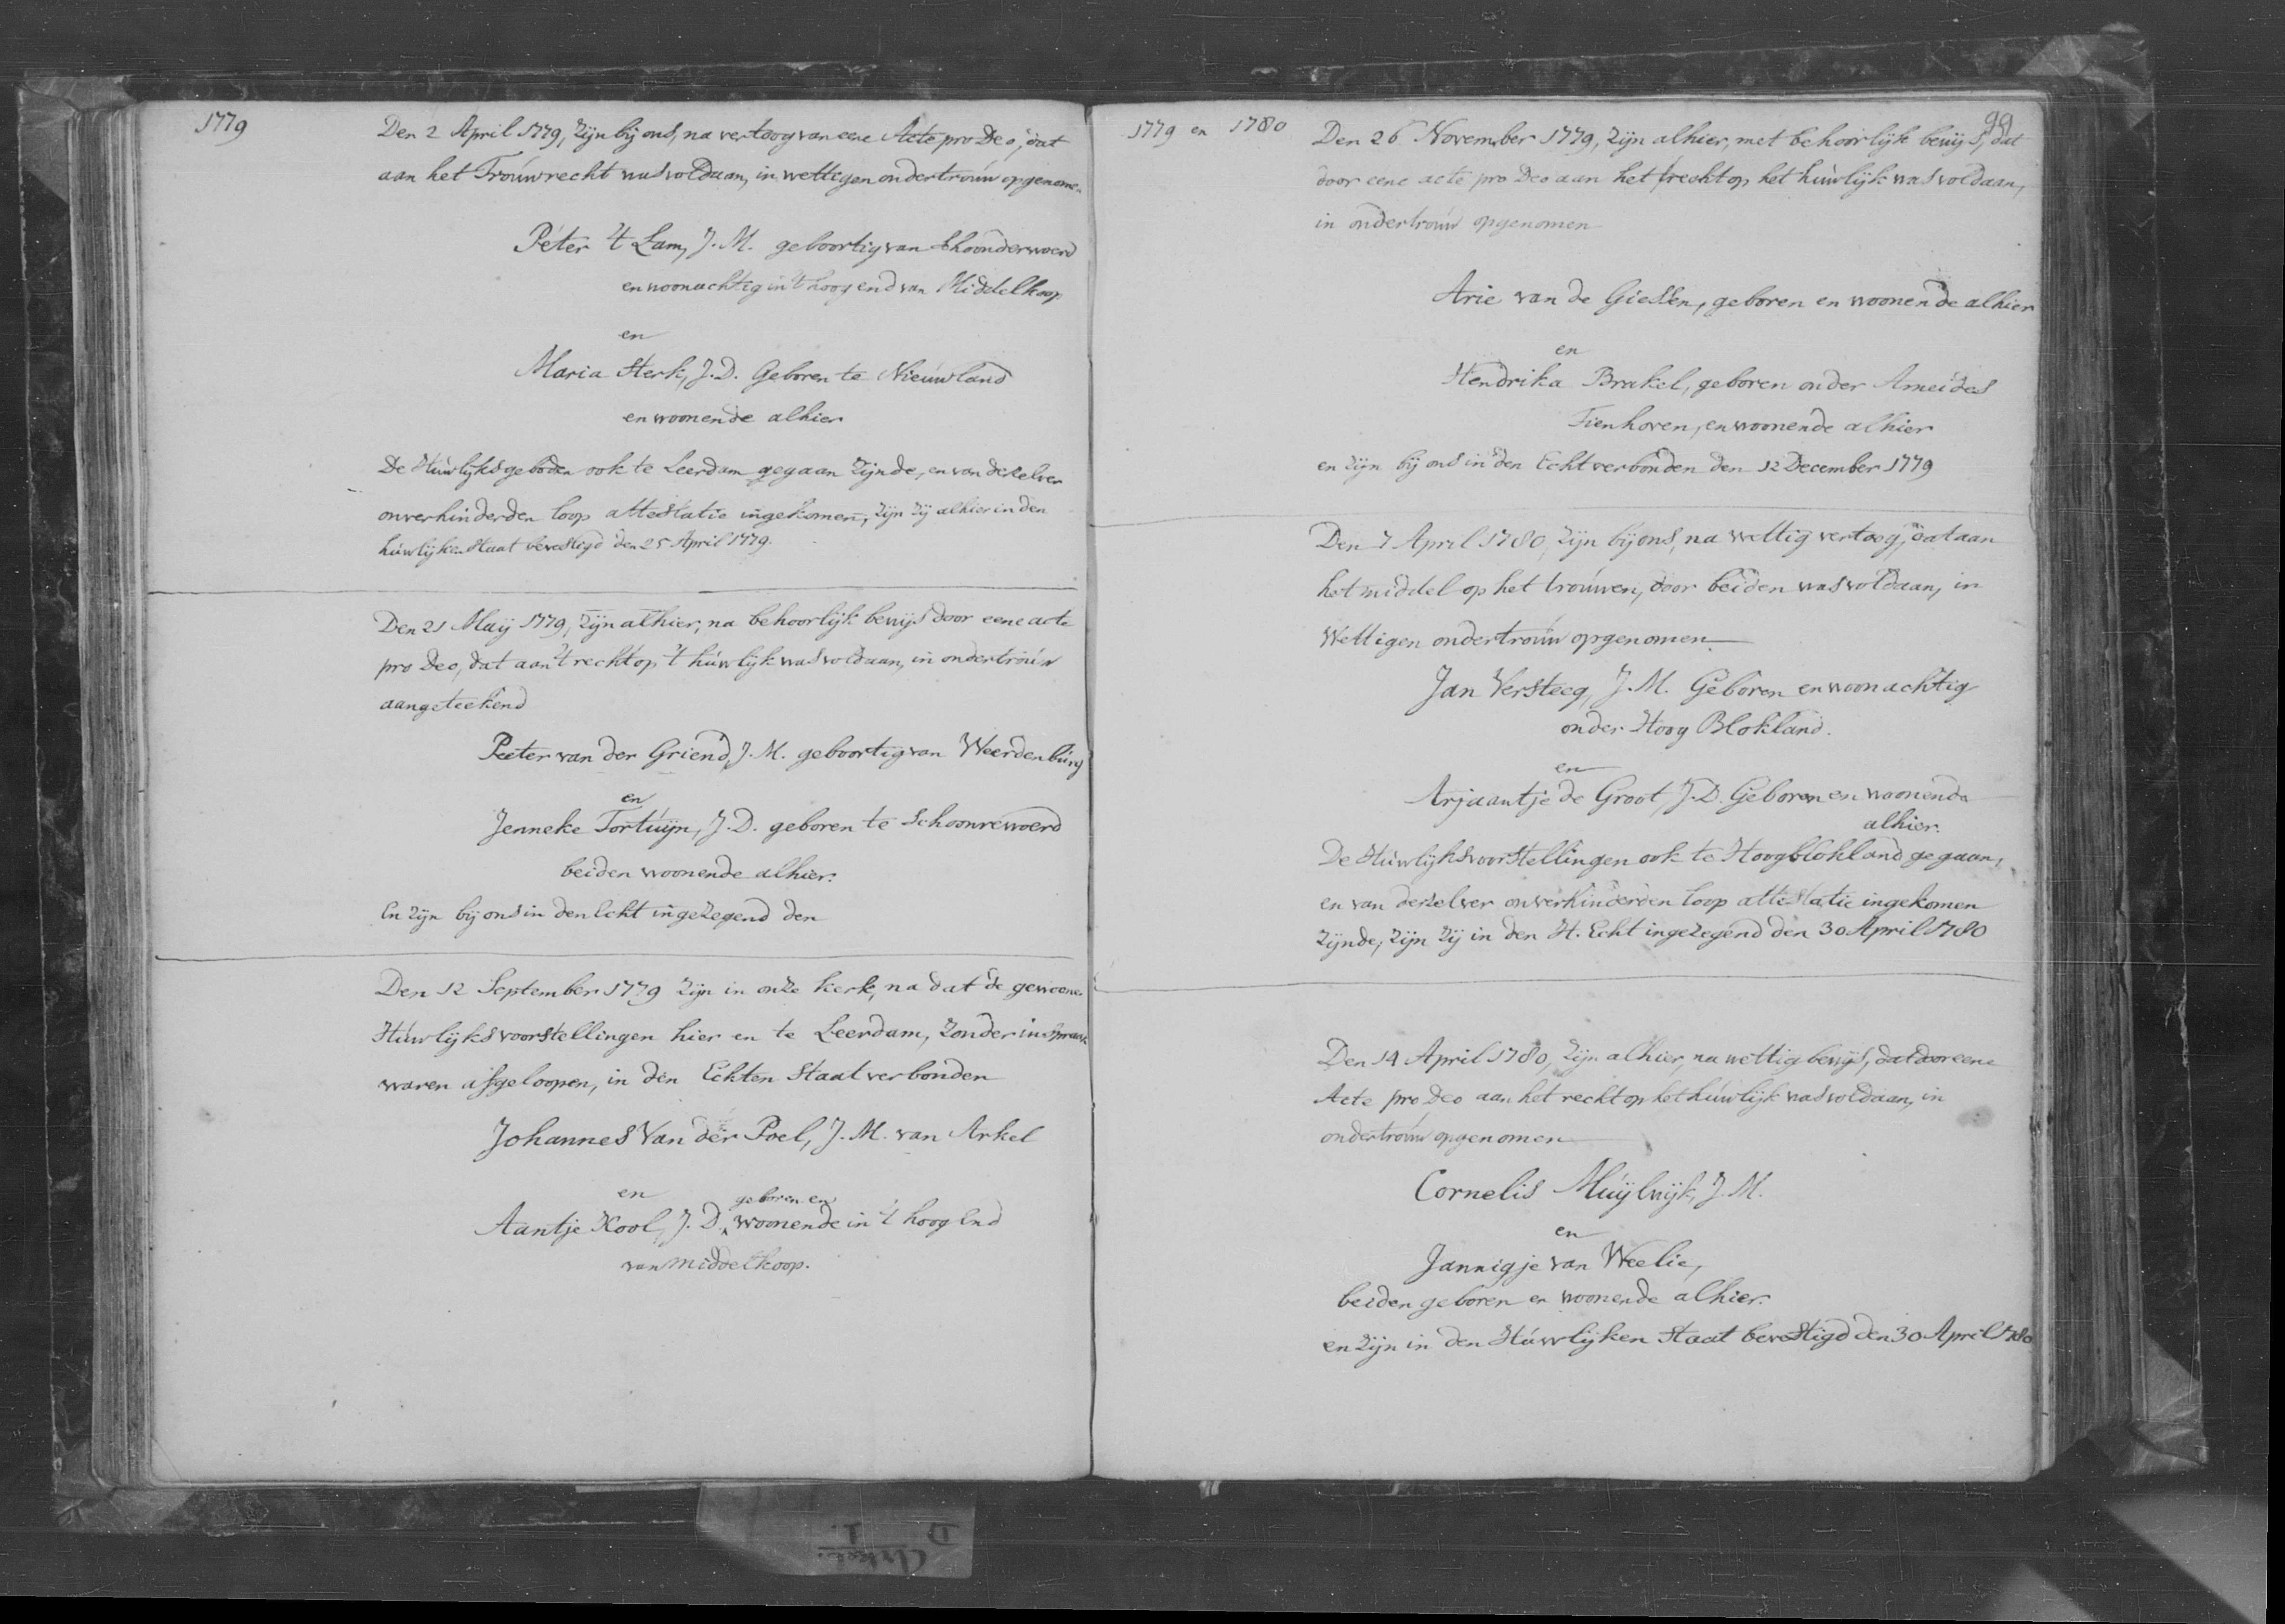 1779
Den 2 April 1779, zijn bij ons, na vertoog van eene Acte pro Deo, dat
aan het Trouwrecht was voldaan, in wettigen ondertrouw opgenomen
Peter 't Lam, J. M. geboortig van Schoonderwoerd
en woonachtig in 't hoog end van Middelkoop
en
Maria Sterk, J. D. Geboren te Nieuwland
en woonende alhier
De Huwlijksgeboden ook te Leerdam gegaan zijnde, en van derzelver
onverhinderden loop attestatie ingekomen, zijn zij alhier in den
huwlijken staat bevestigd den 25 April 1779.
Den 21 Maij 1779, zijn alhier, na behoorlijk bewijs door eene acte
pro Deo, dat aan 't recht op 't huwlijk was voldaan, in ondertrouw
aangeteekend
Peeter van der Griend, J. M. geboortig van Weerdenburg
en
Jenneke Tortuijn, J. D. geboren te Schoonrewoerd
beiden woonende alhier.
En zijn bij ons in den Echt ingezegend den
Den 12 September 1779 zijn in onze kerk, na dat de gewoone
Huwlijksvoorstellingen hier en te Leerdam, zonder inspraak
waren afgeloopen, in den Echten Staat verbonden
Johannes Van der Poel, J. M. van Arkel
en geboren en
Aantje Kool, J. D. woonende in 't hoog End
van Middelkoop.
1779 en 1780
99
Den 26 November 1779, zijn alhier, met behoorlijk bewijs, dat
door eene acte pro Deo aan het recht op het huwlijk was voldaan,
in ondertrouw opgenomen
Arie van de Giessen, geboren en woonende alhier
en
Hendrika Brakel, geboren onder Ameides
Tienhoven, en woonende alhier
en zijn bij ons in den Echt verbonden den 12 December 1779
Den 7 April 1780, zijn bij ons, na wettig vertoog, dat aan
het middel op het trouwen, door beiden was voldaan, in
Wettigen ondertrouw opgenomen
Jan Versteeg, J. M. Geboren en woonachtig
onder Hoog Blokland.
en
Arjaantje de Groot, J. D. Geboren en woonende
alhier.
De Huwlijksvoorstellingen ook te Hoogblokland gegaan,
en van derzelver onverhinderden loop attestatie ingekomen
zijnde, zijn zij in den H. Echt ingezegend den 30 April 1780
Den 14 April 1780, zijn alhier, na wettig bewijs, dat door eene
Acte pro Deo aan het recht op het huwlijk was voldaan, in
ondertrouw opgenomen
Cornelis Muijlwijk, J. M.
en
Jannigje van Weelie,
beiden geboren en woonende alhier.
en zijn in den Huwlijken Staat bevestigd den 30 April 1780
Arkel.
D I.